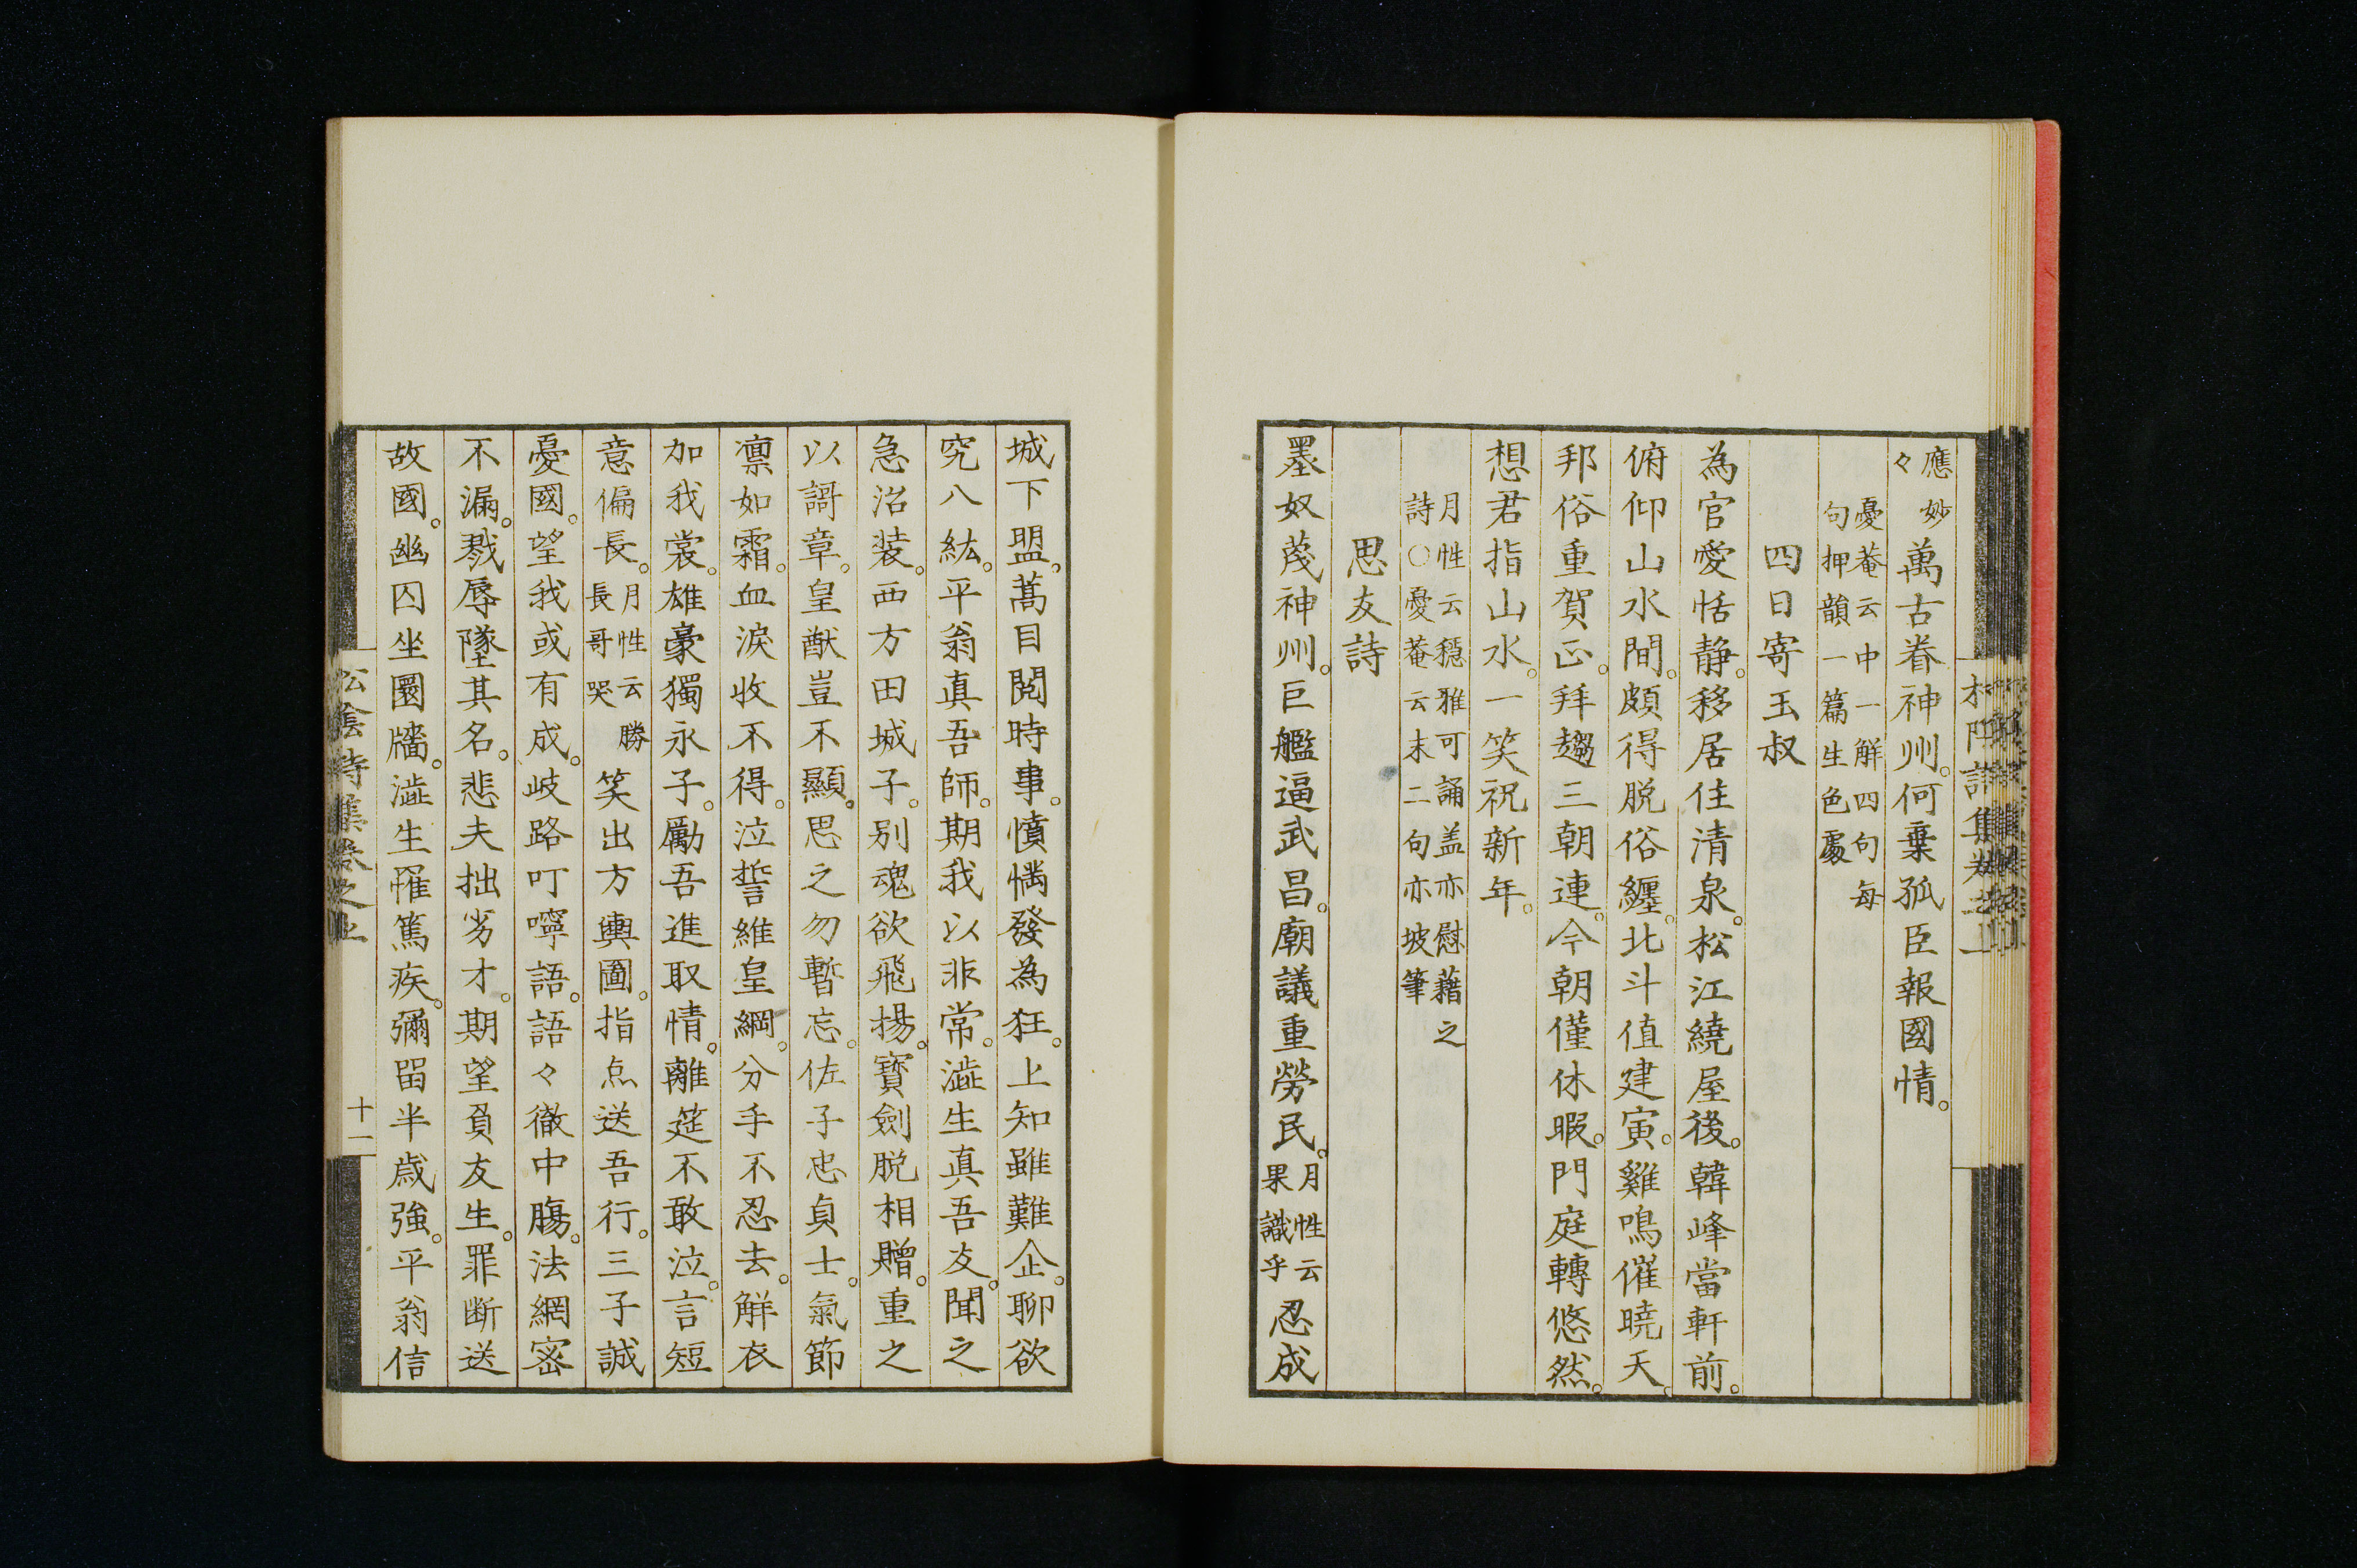 應妙
々
萬古眷神州。何棄孤臣報國情。
憂菴云中一解四句每
句押韻一篇生色處
四日寄玉叔
為官愛恬静。移居住清泉。松江繞屋後。韓峰當軒前。
俯仰山水間。頗得脱俗纏。北斗值建寅。雞鳴催曉天。
邦俗重賀正。拜趨三朝連。今朝僅休暇。門庭轉悠然。
想君指山水。一笑祝新年。
月性云穩雅可誦盖亦慰藉之
詩〇憂菴云末二句亦坡筆
思友詩
墨奴蔑神州。巨艦逼武昌。廟議重勞民。
月性云
果識乎
忍成
城下盟。蒿目閲時事。憤懣發為狂。上知雖難企。聊欲
究八紘。平翁真吾師。期我以非常。澁生真吾友。聞之
急治装。西方田城子。別魂欲飛揚。寶劍脱相贈。重之
以謌章。皇猷豈不顯。思之勿暫忘。佐子忠貞士。氣節
凛如霜。血淚收不得。泣誓維皇綱。分手不忍去。解衣
加我裳。雄豪獨永子。勵吾進取情。離筵不敢泣。言短
意偏長。
月性云勝
長哥哭
笑出方輿圖。指点送吾行。三子誠
憂國。望我或有成。岐路叮嚀語。語々徹中腸。法網密
不漏。戮辱墜其名。悲夫拙劣才。期望負友生。罪断送
故國。幽囚坐圜牆。澁生罹篤疾。彌留半歳強。平翁信
松陰詩集卷之上
十一